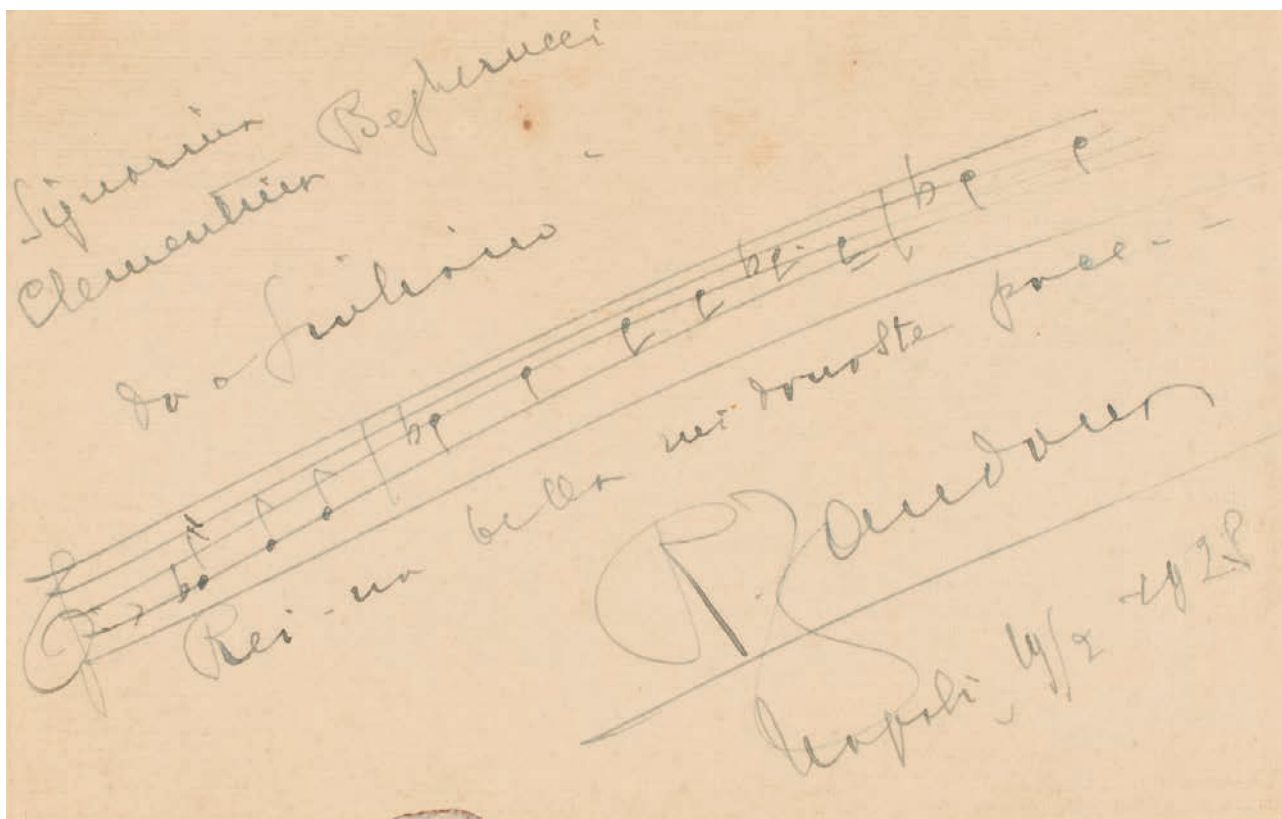 Signorina
Clementina
da Giuliano -
Rei-na bella mi donaste pace - -
R. Zandonai
Napoli, 19/2 - 1928